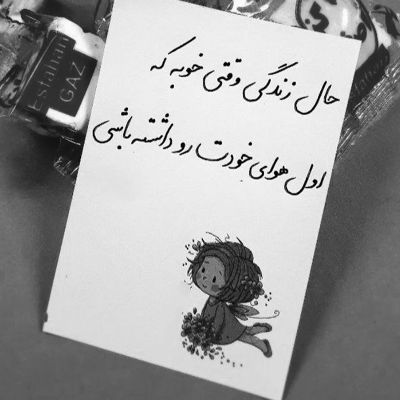 حال زندگی وقتی خوبه که
اول هوای خودت رو داشته باشی
Esfahan
GAZ